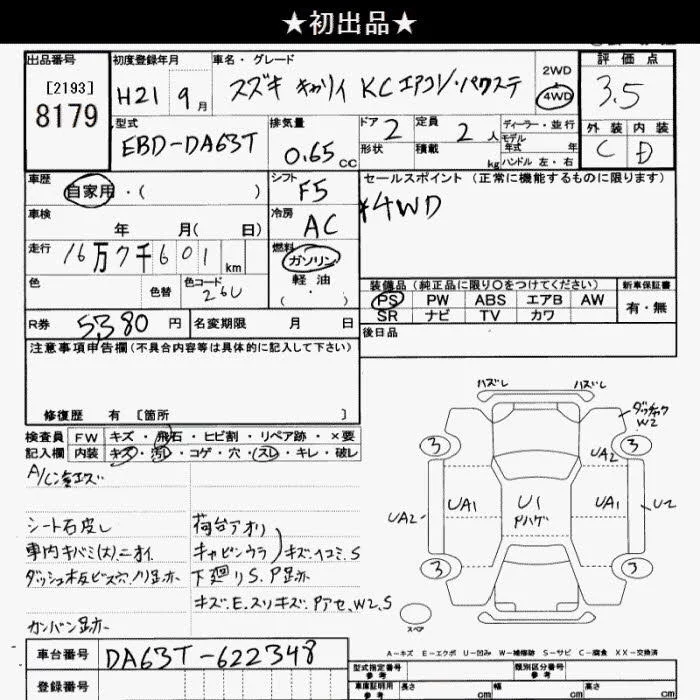 ★初出品★
出品番号 初度登録年月 車名・グレード 評価点
[2193] 8179 H21 9月 スズキ キャリイ KCエアコン・パワステ 2WD 4WD 3.5
型式 排気量 ドア 定員 ディーラー・並行 外装 内装
EBD-DA63T 0.65cc 2 2人 モデル年式 年 C D
形状 積載 kg ハンドル 左・右
車歴 シフト セールスポイント(正常に機能するものに限ります)
自家用・( ) F5 4WD
車検 冷房
年 月( 日) AC
走行 16万7千601km 燃料 ガソリン
軽油
・
( )
色 色替 色コード 26U
装備品(純正品に限り○をつけてください) 新車保証書
PS PW ABS エアB AW 有・無
SR ナビ TV カワ
R券 5,380円 名変期限 月 日 後日品
注意事項申告欄(不具合内容等は具体的に記入して下さい)
修復歴 有 [箇所 ]
検査員 FW キズ・飛石・ヒビ割・リペア跡・×要
記入欄 内装 キズ・汚レ・コゲ・穴・スレ・キレ・破レ
シート右皮し 荷台アオリ
車内キバミ(大)ニオイ キャビンウラ キズ、ヘコミ、S
下廻りS.P跡
キズ.E.スリキズ.Pアセ.W2.S
カンバン跡
ハズレ ハズレ
W2
3 3
UA2
UA2 UA1 U1 UA1
Pハゲ
3 3
スペア
A-キズ E-エクボ U-凹み W-補修跡 S-サビ C-腐食 XX-交換済
車台番号 DA63T-622348 型式指定番号 参考 類別区分番号 参考
登録番号 車庫証明用 参考 長さ cm 幅 cm 高さ cm